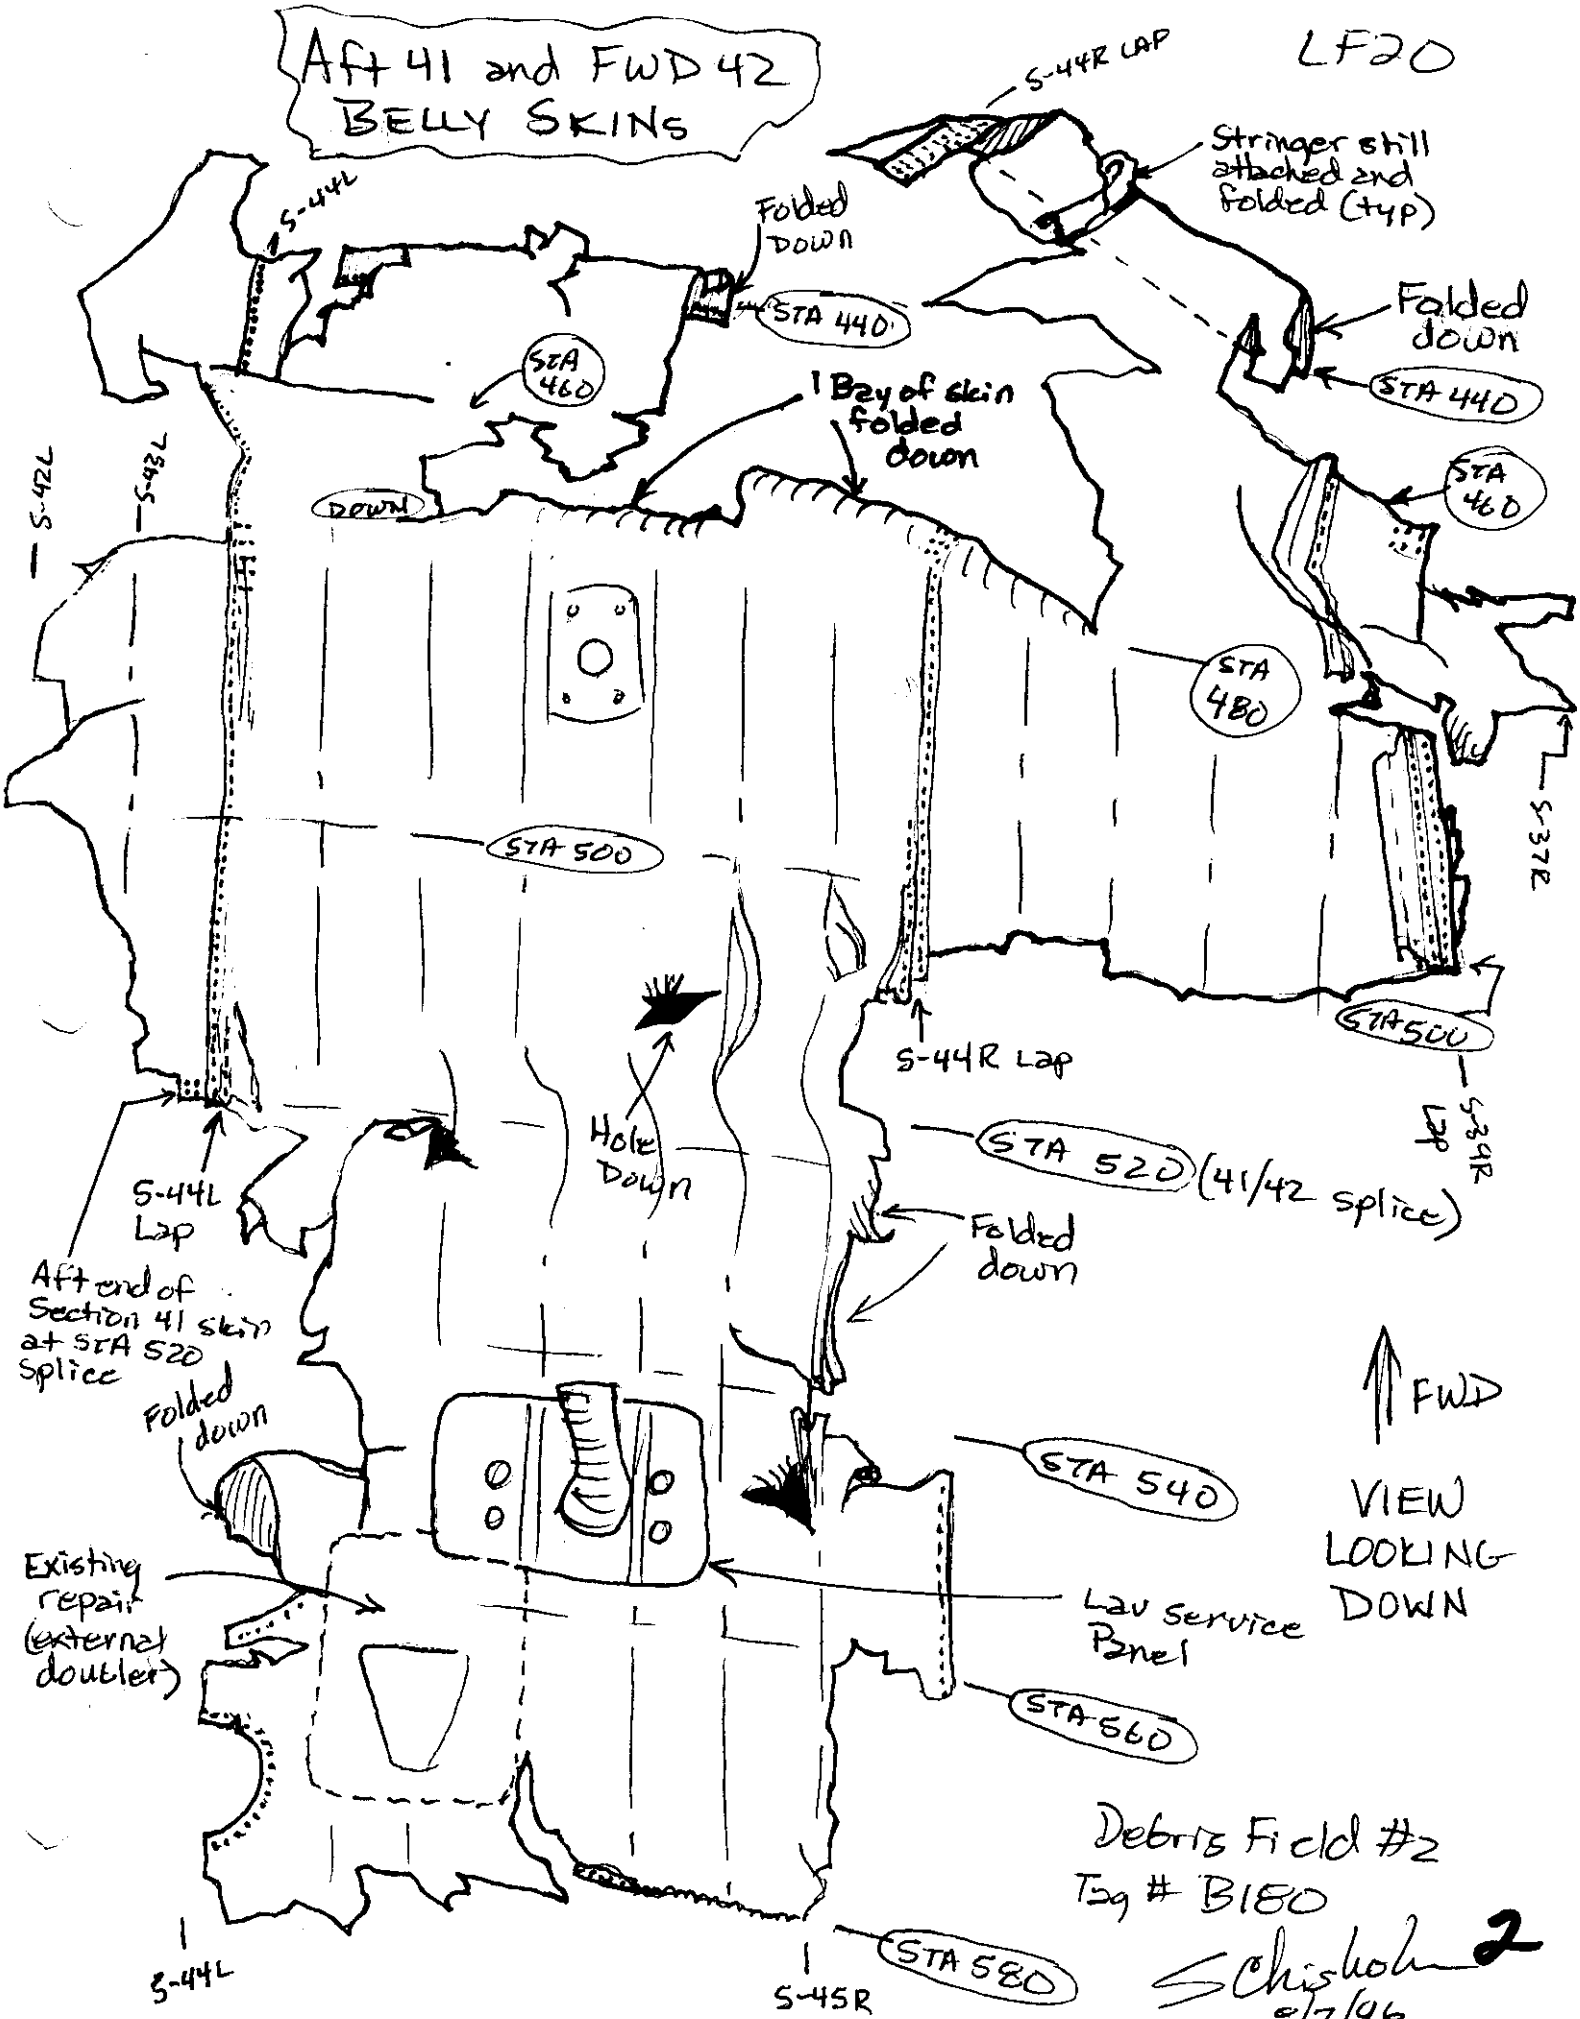 Aft 41 and FWD 42
BELLY SKINS
LF20
S-44R LAP
Stringer still
attached and
folded (typ)
S-44L
Folded
Down
STA 440
Folded
down
STA 440
STA
460
1 Bay of skin
folded
down
STA
460
S-42L
S-43L
DOWN
STA
480
S-37R
STA 500
STA 500
S-44R Lap
S-39R
Lap
Hole
Down
STA 520 (41/42 splice)
S-44L
Lap
Folded
down
Aft end of
Section 41 skin
at STA 520
splice
Folded
down
FWD
STA 540
VIEW
LOOKING
DOWN
Existing
repair
(external
doubler)
Lav Service
Panel
STA 560
Debris Field #2
Tag # B180
S-44L
STA 580
S-45R
SChisholm 2
8/7/96